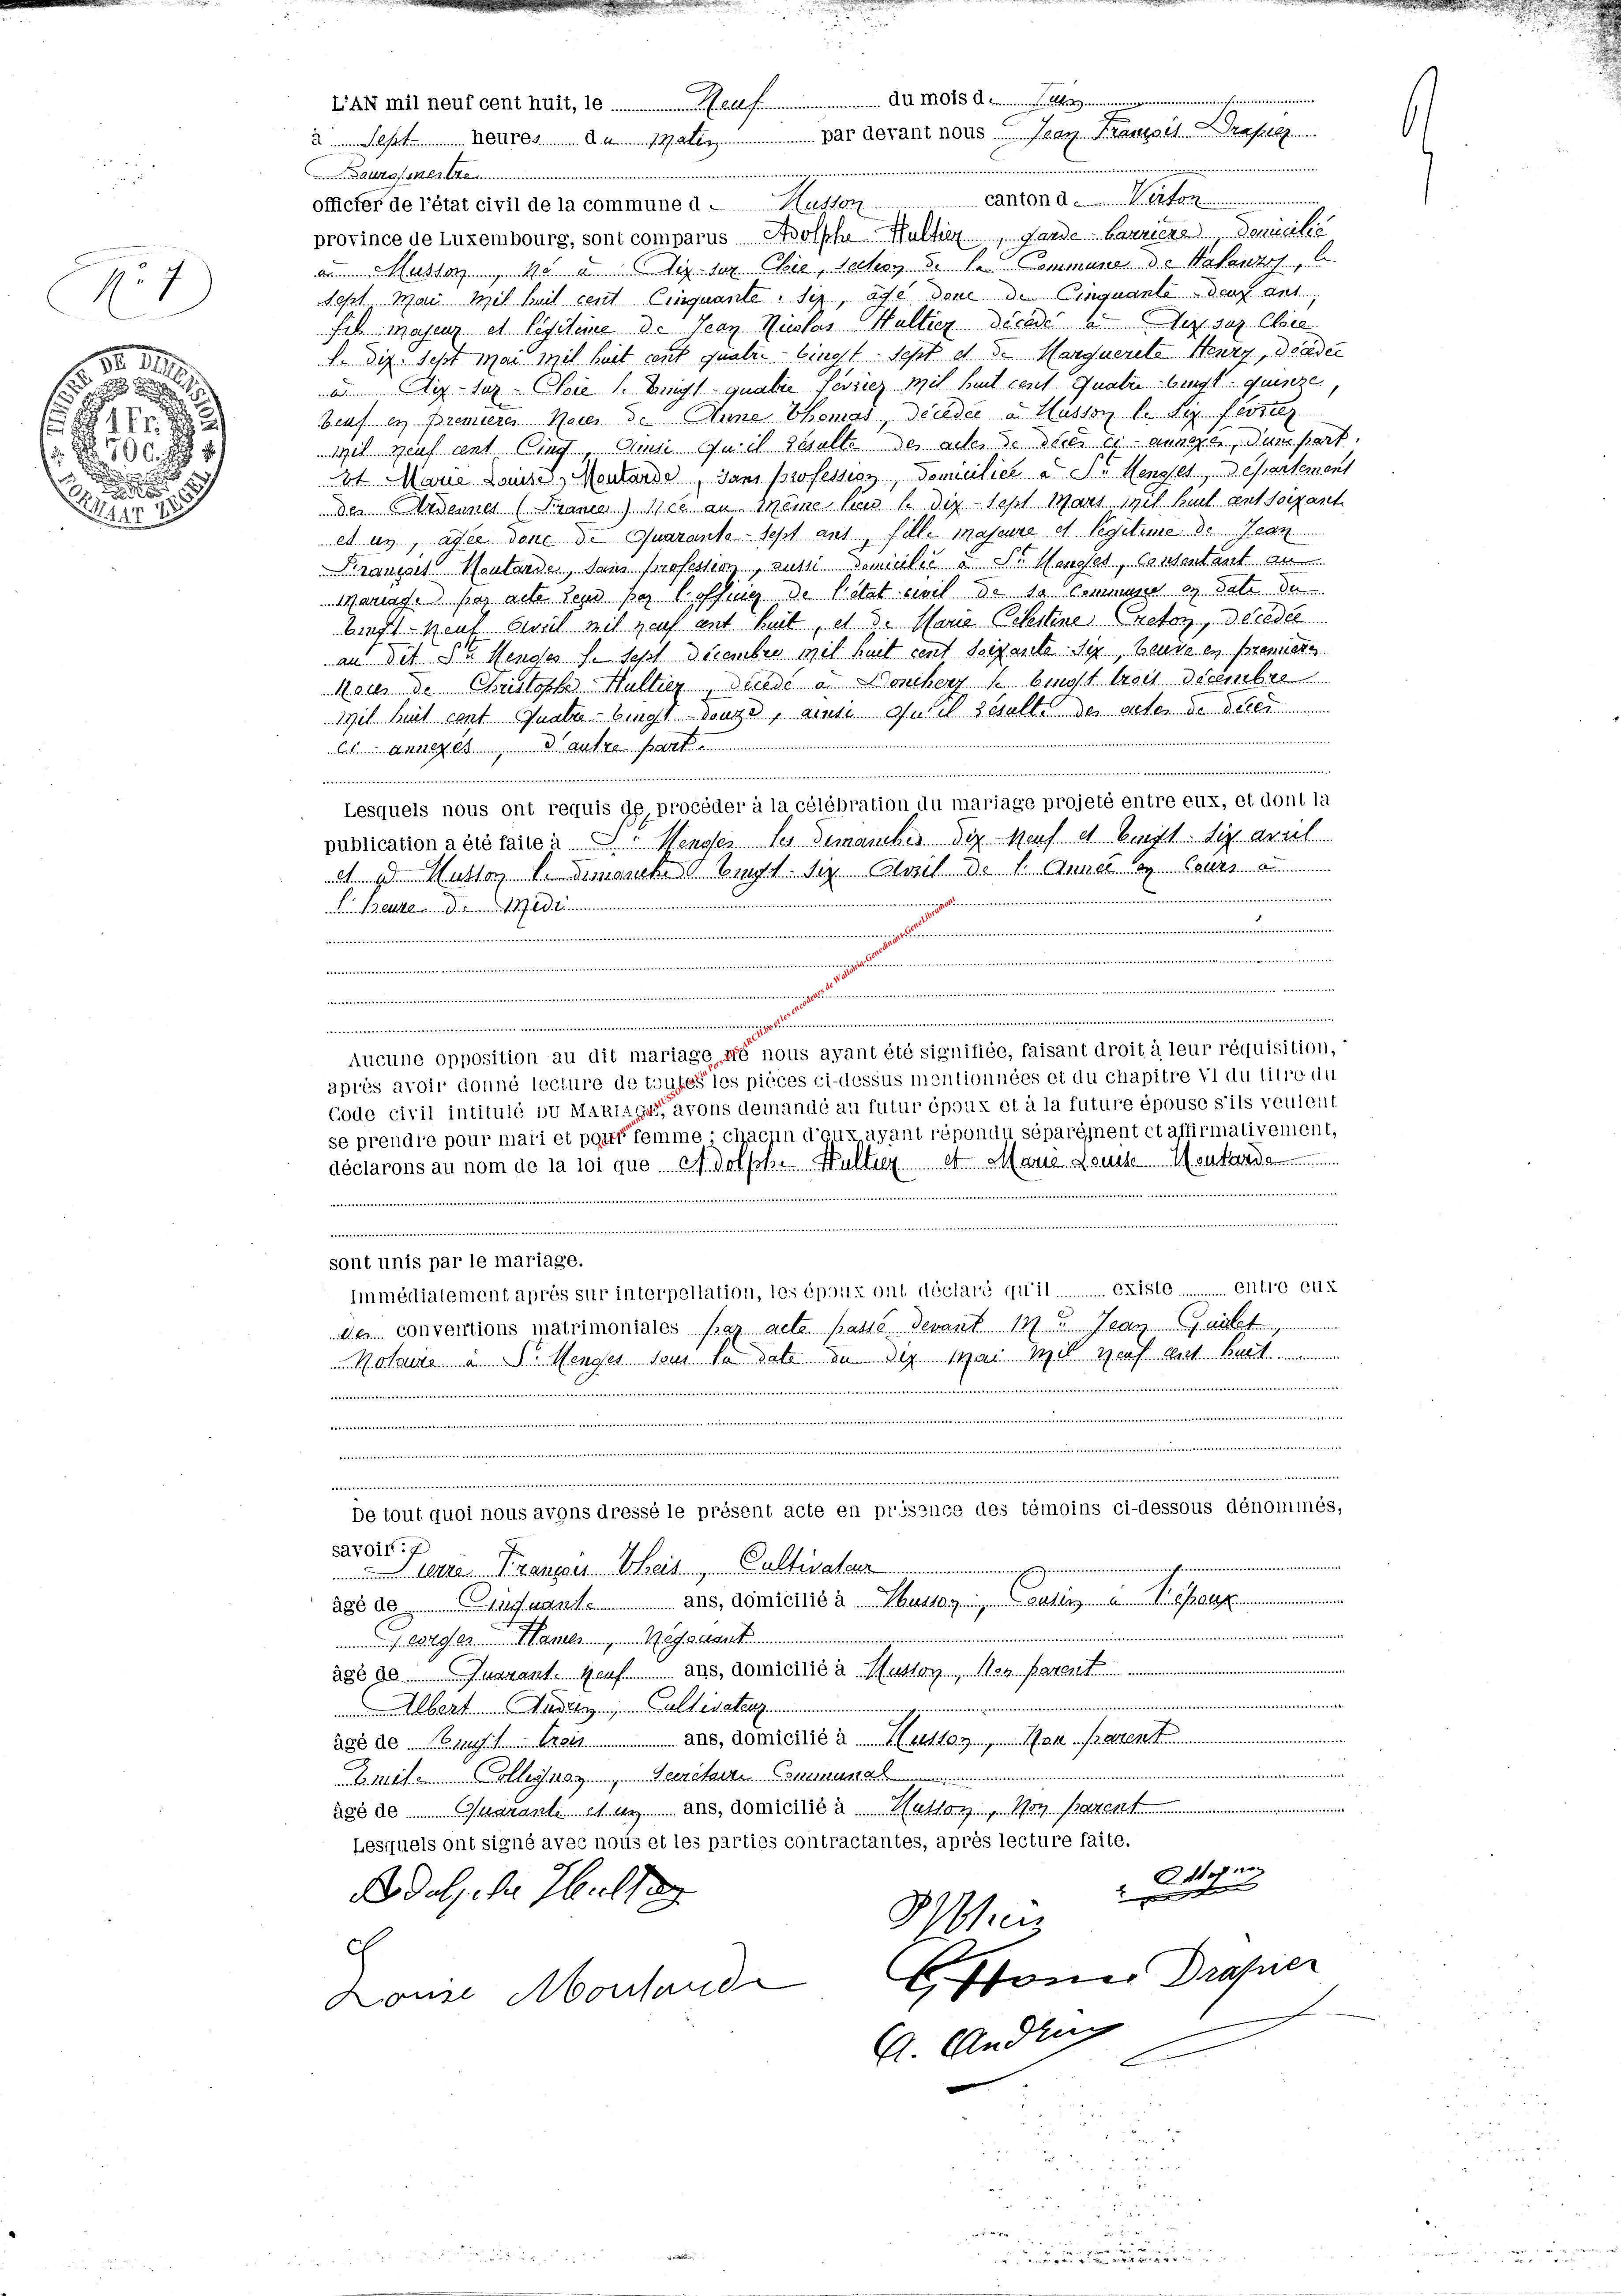 L'AN mil neuf cent huit, le Neuf du mois de Juin
à Sept heures du Matin par devant nous Jean François Drapier
Bourgmestre
officier de l'état civil de la commune de Musson canton de Virton
province de Luxembourg, sont comparus Adolphe Hultier, garde-barrière, domicilié
à Musson, né à Aix-sur Cloie, section de la Commune de Halanzy, le
sept Mai mil huit cent Cinquante-six, âgé donc de Cinquante-deux ans,
fils majeur et légitime de Jean Nicolas Hultier décédé à Aix-sur Cloie
le dix-sept mai mil huit cent quatre-vingt-sept et de Marguerite Henry, décédée
à Aix-sur-Cloie le vingt-quatre février mil huit cent quatre-vingt-quinze,
veuf en premières Noces de Anne Thomas, décédée à Musson le six février
mil neuf cent Cinq, Ainsi qu'il résulte des actes de décès ci-annexés, d'une part.
Et Marie Louise Moutarde, sans profession, domiciliée à St Menges, Département
des Ardennes (France) Née au même lieu le dix-sept Mars mil huit cent soixante
et un, âgée donc de Quarante-sept ans, fille majeure et légitime de Jean
François Moutarde, sans profession, aussi domicilié à St Menges, consentant au
mariage par acte reçu par l'officier de l'état civil de sa Commune en date du
vingt-neuf Avril mil neuf cent huit, et de Marie Célestine Creton, décédée
au dit St Menges le sept décembre mil huit cent soixante-six, veuve en premières
Noces de Christophe Hultier, décédé à Donchery le vingt trois décembre
mil huit cent Quatre-vingt-douze, ainsi qu'il résulte des actes de décès
ci-annexés, d'autre part.
Lesquels nous ont requis de procéder à la célébration du mariage projeté entre eux, et dont la
publication a été faite à St Menges les dimanches dix-neuf et vingt-six avril
et à Musson le dimanche vingt-six Avril de l'Année en Cours à
l'heure de Midi
Aucune opposition au dit mariage ne nous ayant été signifiée, faisant droit à leur réquisition,
après avoir donné lecture de toutes les pièces ci-dessus mentionnées et du chapitre VI du titre du
Code civil intitulé DU MARIAGE, avons demandé au futur époux et à la future épouse s'ils veulent
se prendre pour mari et pour femme ; chacun d'eux ayant répondu séparément et affirmativement,
déclarons au nom de la loi que Adolphe Hultier et Marie Louise Moutarde
sont unis par le mariage.
Immédiatement après sur interpellation, les époux ont déclaré qu'il existe entre eux
des conventions matrimoniales par acte passé devant Me Jean
Notaire à St Menges sous la date du dix Mai mil neuf cent huit
De tout quoi nous avons dressé le présent acte en présence des témoins ci-dessous dénommés,
savoir :
Pierre François Theis, Cultivateur
âgé de Cinquante ans, domicilié à Musson, Cousin à l'époux
Georges Hames, Négociant
âgé de Quarante neuf ans, domicilié à Musson, Non parent
Albert Andrin, Cultivateur
âgé de Vingt-trois ans, domicilié à Musson, Non parent
Emile Collignon, Secrétaire Communal
âgé de Quarante et un ans, domicilié à Musson, Non parent
Lesquels ont signé avec nous et les parties contractantes, après lecture faite.
Adolphe Hultier
Collignon
Theis
Louise Moutarde
Drapier
A. Andrin
No 7
TIMBRE DE DIMENSION
1 Fr.
50 C.
FORMAAT ZEGEL